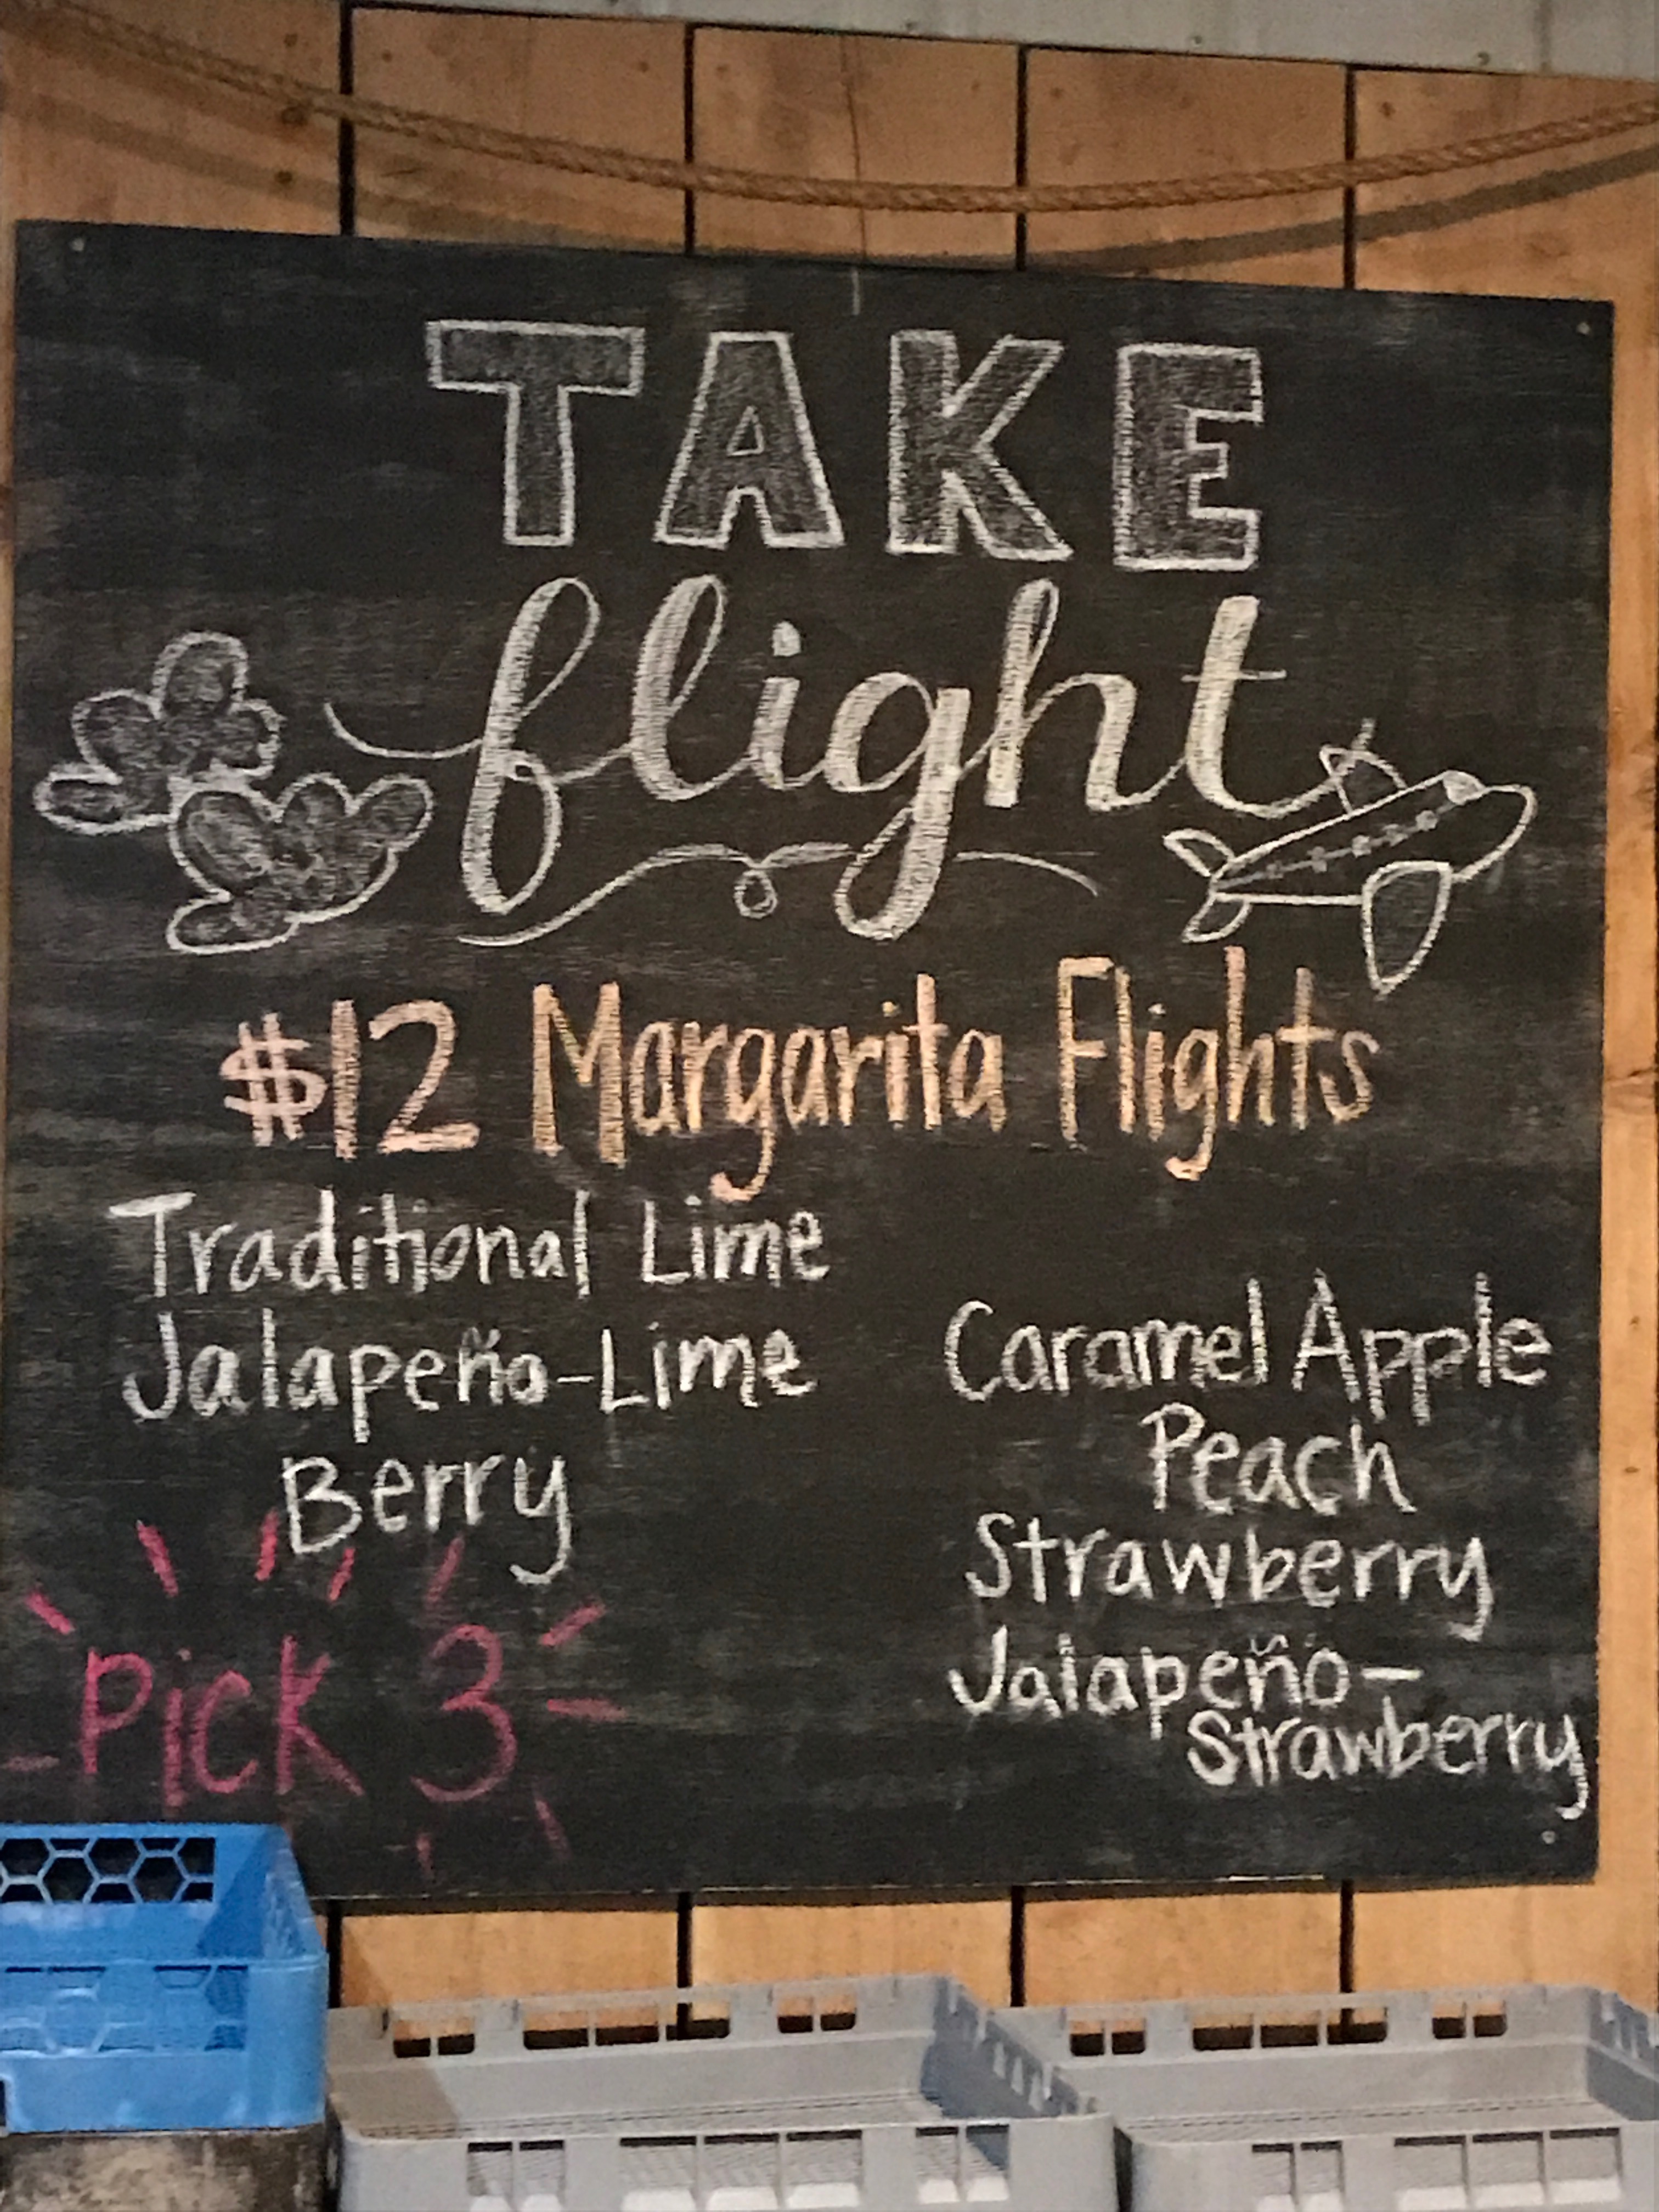 TAKE
flight
$12 Margarita Flights
Traditional Lime
Jalapeño-Lime
Berry
Pick 3
Caramel Apple
Peach
Strawberry
Jalapeño-
Strawberry